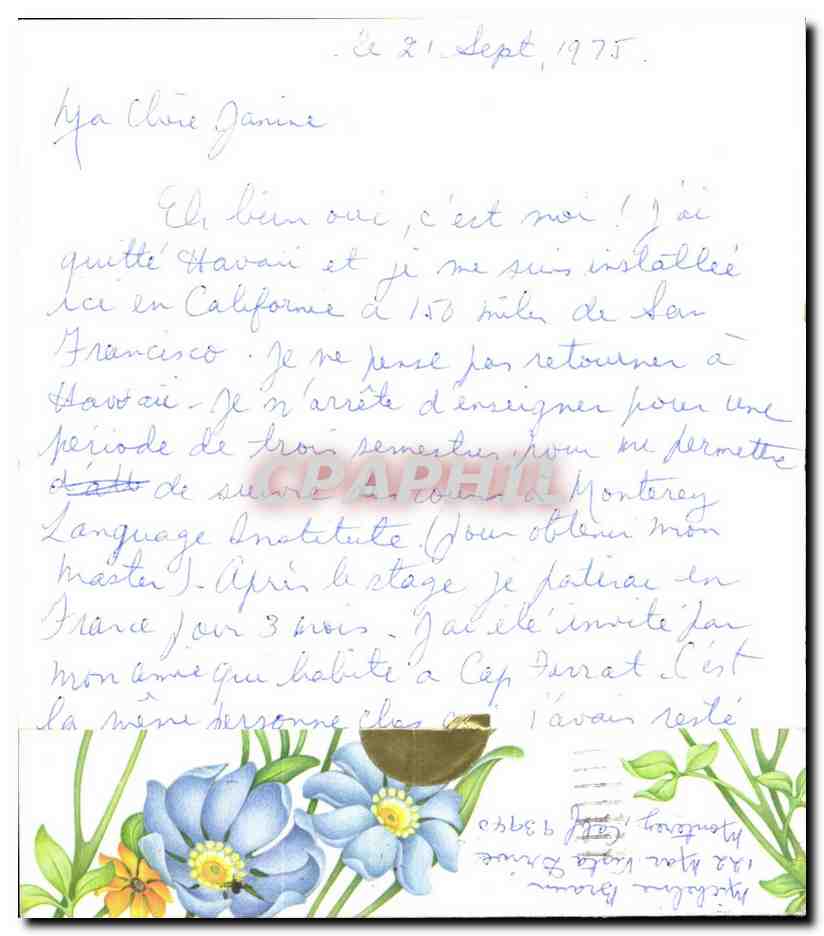 le 21 Sept, 1975.
Ma Chère Janine
Eh bien oui, c'est moi ! J'ai
quitté Havaii et je me suis installée
ici en Californie à 150 miles de San
Francisco. Je ne pense pas retourner à
Havaii - Je m'arrête d'enseigner pour une
période de trois semestres, pour me permettre
de suivre des cours à Monterey
Language Institute (pour obtenir mon
Master). Après le stage je partirai en
France pour 3 mois. J'ai été invité par
mon amie qui habite à Cap Ferrat. C'est
la même personne chez qui j'avais resté
CPAPHIL
Micheline Braun
122 Mar Vista Drive
Monterey, Calif 93940